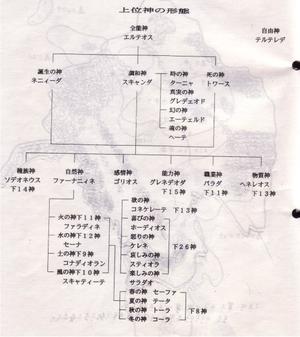 上位神の形態
全能神
エルテオス
自由神
テルテレデ
誕生の神
ネニィーダ
調和神
スキャンダ
時の神
ターニャ
真実の神
グレデェオド
幻の神
エーテェルド
魂の神
ヘーテ
死の神
トワース
種族神
ソデオネウス
下14神
自然神
ファーナニィネ
感情神
ゴリオス
能力神
グレネデオダ
下15神
職業神
パラダ
下11神
物質神
ヘネレオス
下13神
火の神下11神
ファラディネ
水の神下12神
セーナ
土の神下9神
コナディオラン
風の神下10神
スキャティーテ
歌の神
コネケレーテ 下13神
喜びの神
ホーディオス
怒りの神
ケレネ
哀しみの神
スティオラ
楽しみの神
サラダオ
下26神
春の神 セーファ
夏の神 テータ
秋の神 トーラ
冬の神 コーラ
下8神